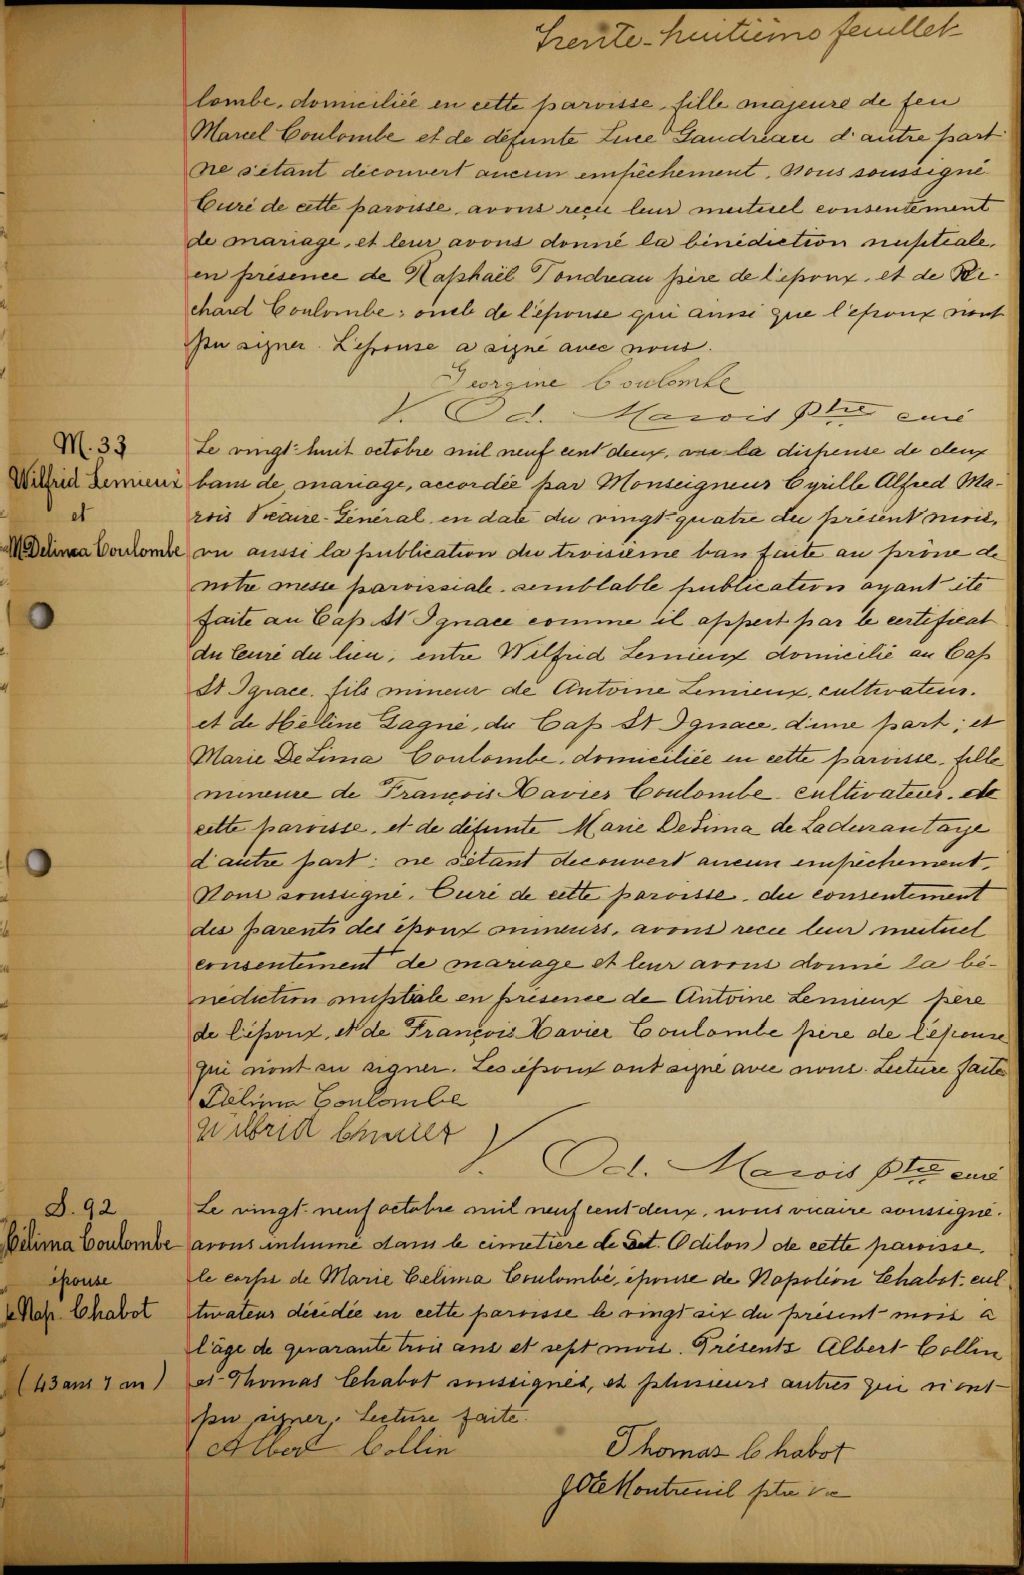 Trente-huitième feuillet
lombe, domiciliée en cette paroisse, fille majeure de feu
Marcel Coulombe et de défunte Luce Gaudreau d'autre part
ne s'étant découvert aucun empêchement, Nous soussigné
Curé de cette paroisse, avons reçu leur mutuel consentement
de mariage, et leur avons donné la bénédiction nuptiale,
en présence de Raphaël Tondreau père de l'époux, et de Ri-
chard Coulombe, oncle de l'épouse qui ainsi que l'époux n'ont
pu signer. L'épouse a signé avec nous.
Georgine Coulombe
V. Od. Marois Ptre curé
M. 33
Wilfrid Lemieux
et
M. Delima Coulombe
Le vingt-huit octobre mil neuf cent deux, vu la dispense de deux
bans de mariage, accordée par Monseigneur Cyrille Alfred Ma-
rois Vicaire-Général en date du vingt-quatre du présent mois,
vu aussi la publication du troisième ban faite au prône de
notre messe paroissiale, semblable publication ayant été
faite au Cap St Ignace comme il appert par le certificat
du Curé du lieu; entre Wilfrid Lemieux domicilié au Cap
St Ignace, fils mineur de Antoine Lemieux, cultivateur,
et de Héline Gagné, du Cap St Ignace, d'une part; et
Marie DeLima Coulombe, domiciliée en cette paroisse, fille
mineure de François-Xavier Coulombe cultivateur, de
cette paroisse, et de défunte Marie DeLima de Ladurantaye
d'autre part; ne s'étant decouvert aucun empêchement,
Nous soussigné, Curé de cette paroisse, du consentement
des parents des époux mineurs, avons recu leur mutuel
consentement de mariage et leur avons donné la bé-
nédiction nuptiale en présence de Antoine Lemieux père
de l'époux, et de François Xavier Coulombe père de l'épouse
qui n'ont su signer. Les époux ont signé avec nous. Lecture faite
Délima Coulombe
Wilfrid
V. Od. Marois Ptre curé
S. 92
Célima Coulombe
épouse
de Nap. Chabot
(43 ans 7 m)
Le vingt-neuf octobre mil neuf cent-deux, nous vicaire soussigné,
avons inhumé dans le cimetière (de St. Odilon) de cette paroisse,
le corps de Marie Celima Coulombe, épouse de Napoléon Chabot, cul
tivateur décédée en cette paroisse le vingt six du présent mois à
l'âge de quarante trois ans et sept mois. Présents Albert Collin
et Thomas Chabot soussignés, et plusieurs autres qui n'ont
pu signer. Lecture faite.
Albert Collin
Thomas Chabot
JOE Montreuil ptre Vic